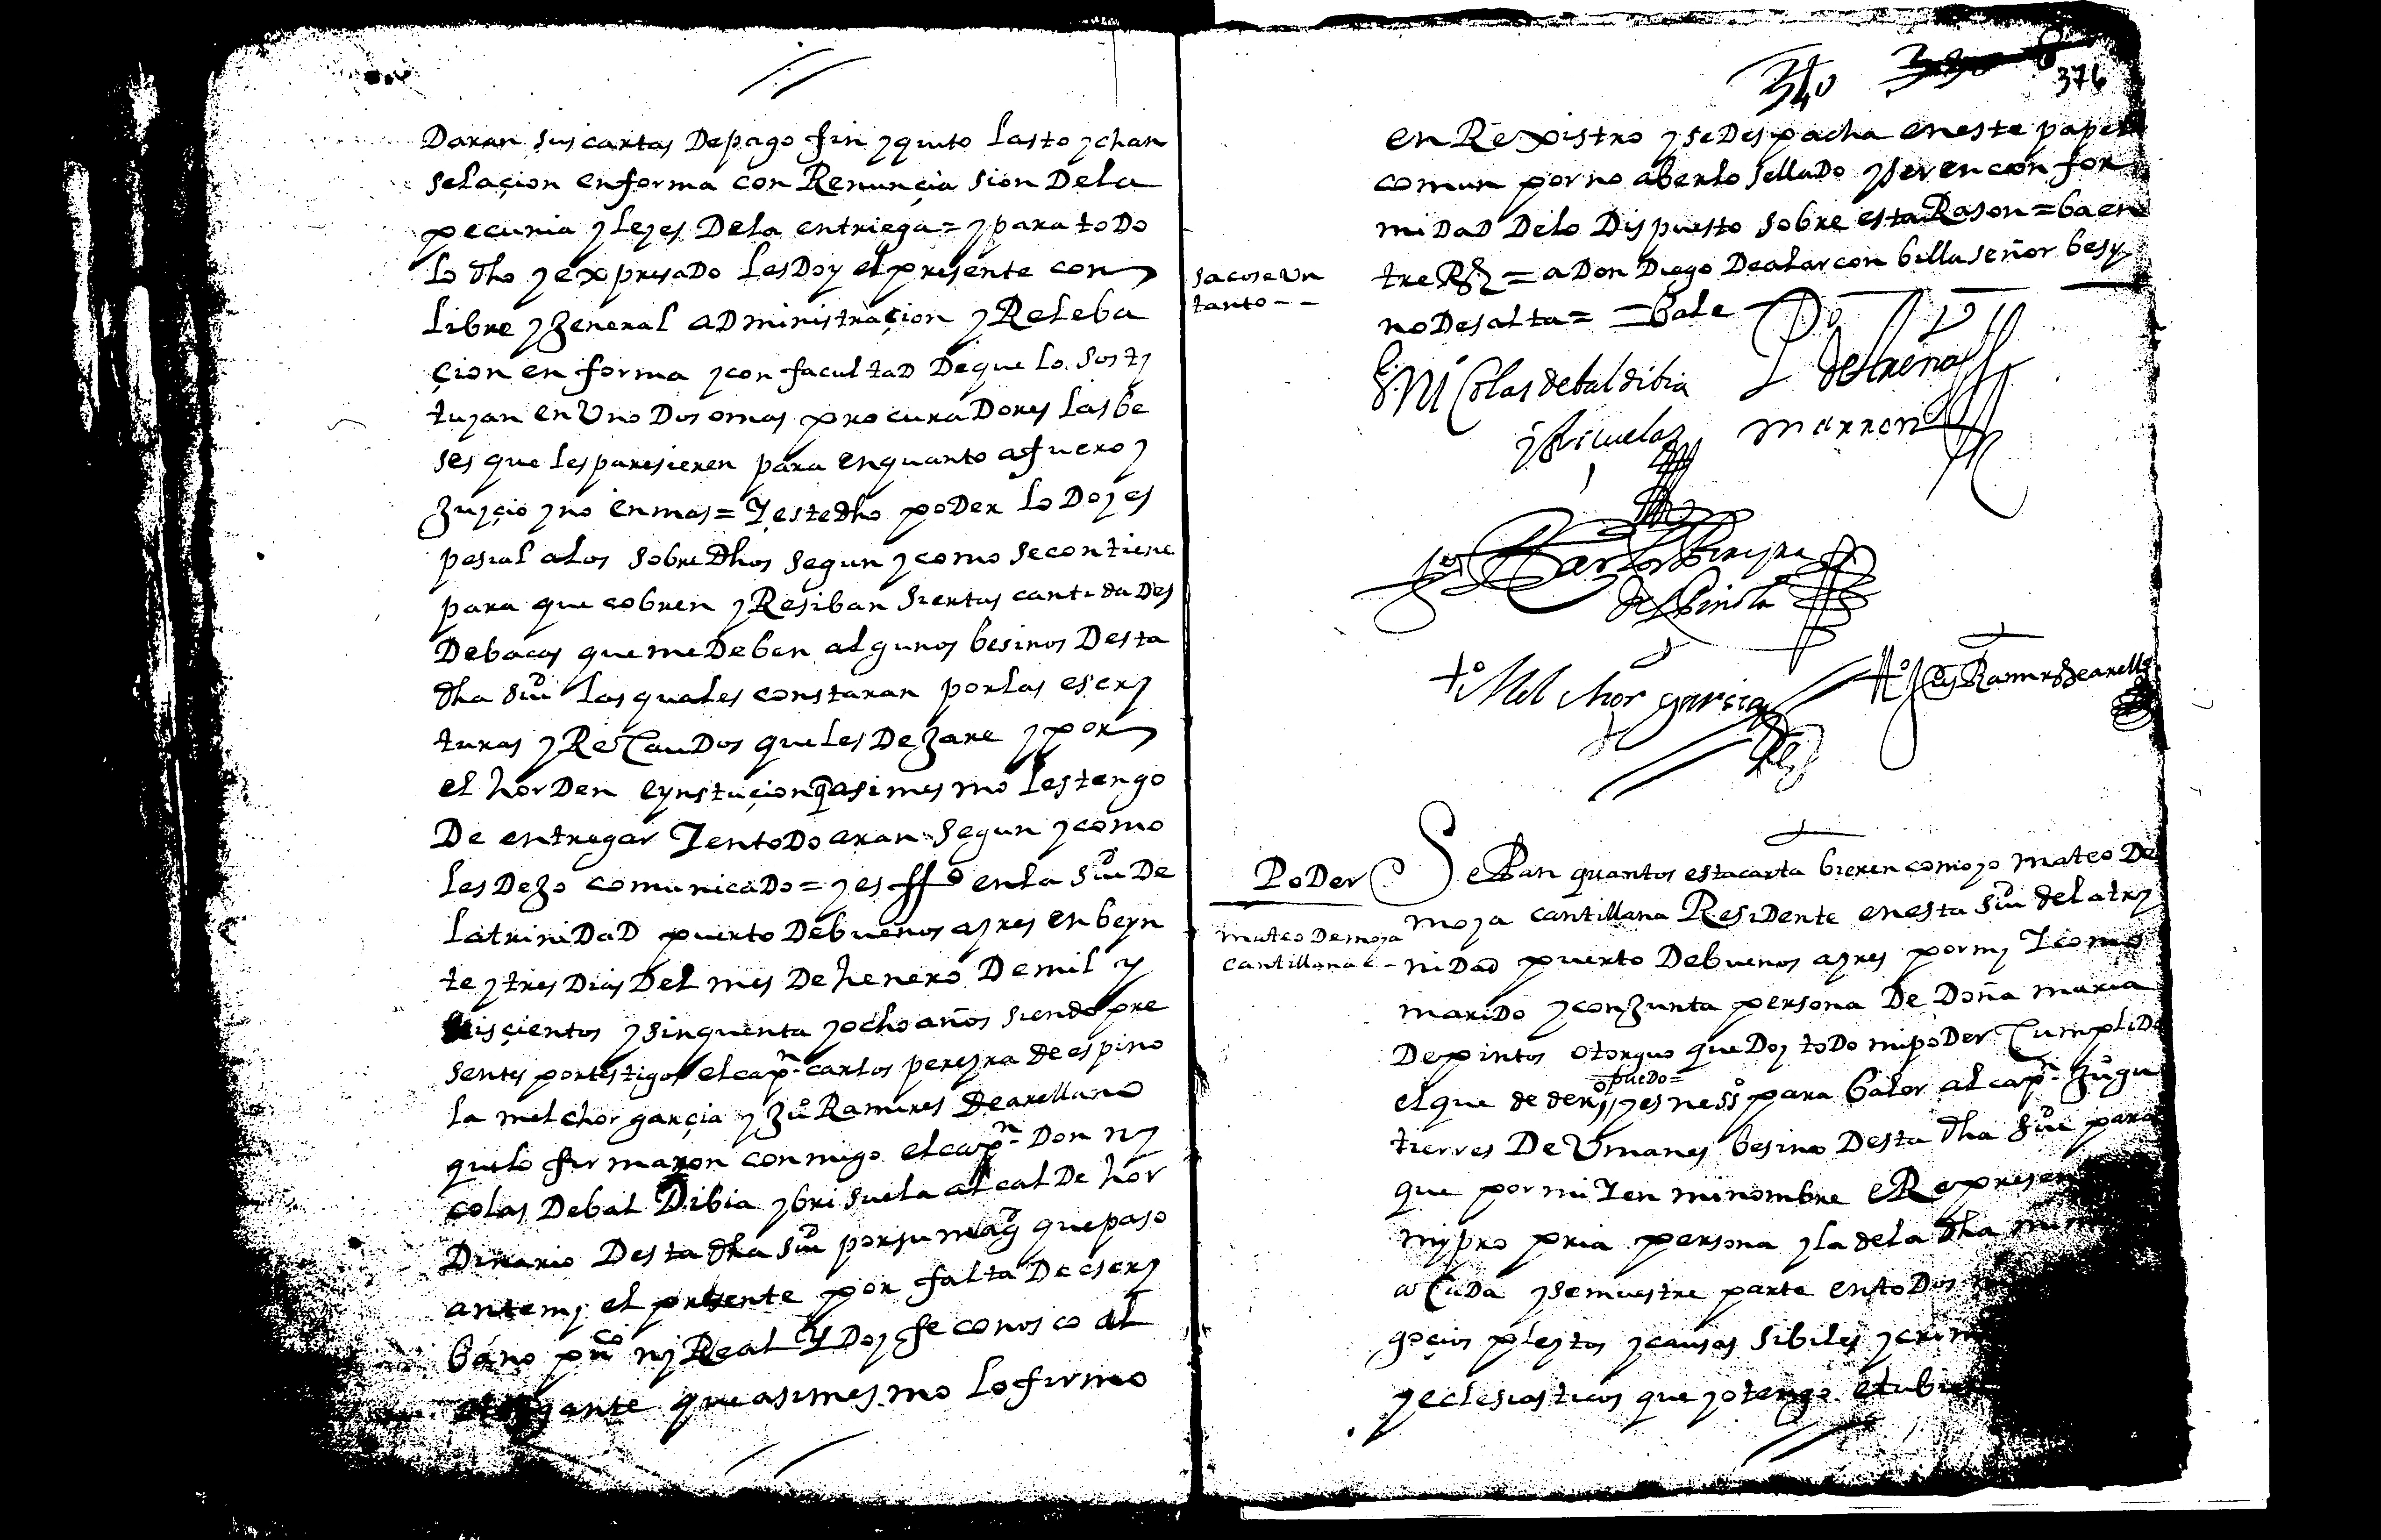 Daran sus cartas Depago fin y quito lasto y chan
selaçion enforma con Renunçia sion Dela
pecunia y leyes Dela entriega = y para todo
lo dho y expresado les Doy el presente con
libre y general administraçion y Releba
çion en forma y con facultad De que lo sosti
tuyan en Uno Dos omas procuradores las be
ses que les paresieren para enquanto afuero y
Juyçio y no en mas = Y este dho poder lo Doy es
pesial alos sobre dhos segun y como se contiene
para que cobren y Resiban siertas cantidades
Debacas que me Deben algunos besinos Desta
dha siu^d las quales constaran por las escri
turas y Recaudos que les Dejare y por
el horden e ynstuçion q asi mesmo les tengo
De entregar Y en todo aran segun y como
les Dejo comunicado = y es ff^o en la siu^d De
la trinidad puerto De buenos ayres en beyn
te y tres Dias Del mes De henero De mil y
seisçientos y sinquenta y ocho años siendo pre
sentes por testigos el cap^n carlos pereyra de espino
la melchor garçia y Ju^o Ramires De arellano
que lo firmaron conmigo el cap^n Don ny
colas Debal Dibia y brisuela alcalde hor
Dinario Desta dha siu^d por su mag^d que paso
ante my el presente por falta De escri
bano pu^co ny Real Y Doy fe conosco al
otorgante que asimesmo lo firmo
340 376
en Rexistro y se Despacha en este papel
comun por no aberlo sellado y ser en con for
midad Delo Dispuesto sobre esta Rason = ba en
tre Rs = a Don Diego De alarcon billaseñor besy
no De salta = = Bale
saco se Un
tanto - -
Nicolas debaldibia
y brisuela
marron
Carlos Pereyra
de Espinola
t^o Melchor garcia
t^o Ju^o Ramires de arellano
PoDer
mateo De moya
cantillana
Se Pan quantos esta carta bieren como yo mateo De
moya cantillana Residente en esta siu^d de la try
nidad puerto De buenos ayres por my Y como
marido y conjunta persona De Doña maria
De pintos otorguo que Doy todo mi poder Cumplido
puedo =
el que de der^o y es ness^o para baler al cap^n Ju^o gu
tierres De Umanes besino Desta dha siu^d para
que por mi Y en mi nombre e Represen
my propria persona y la de la dha mi m
acuda y se muestre parte en todos
goçios pleytos y causas sibiles y crim
y eclesiasticos que yo tengo e tubie